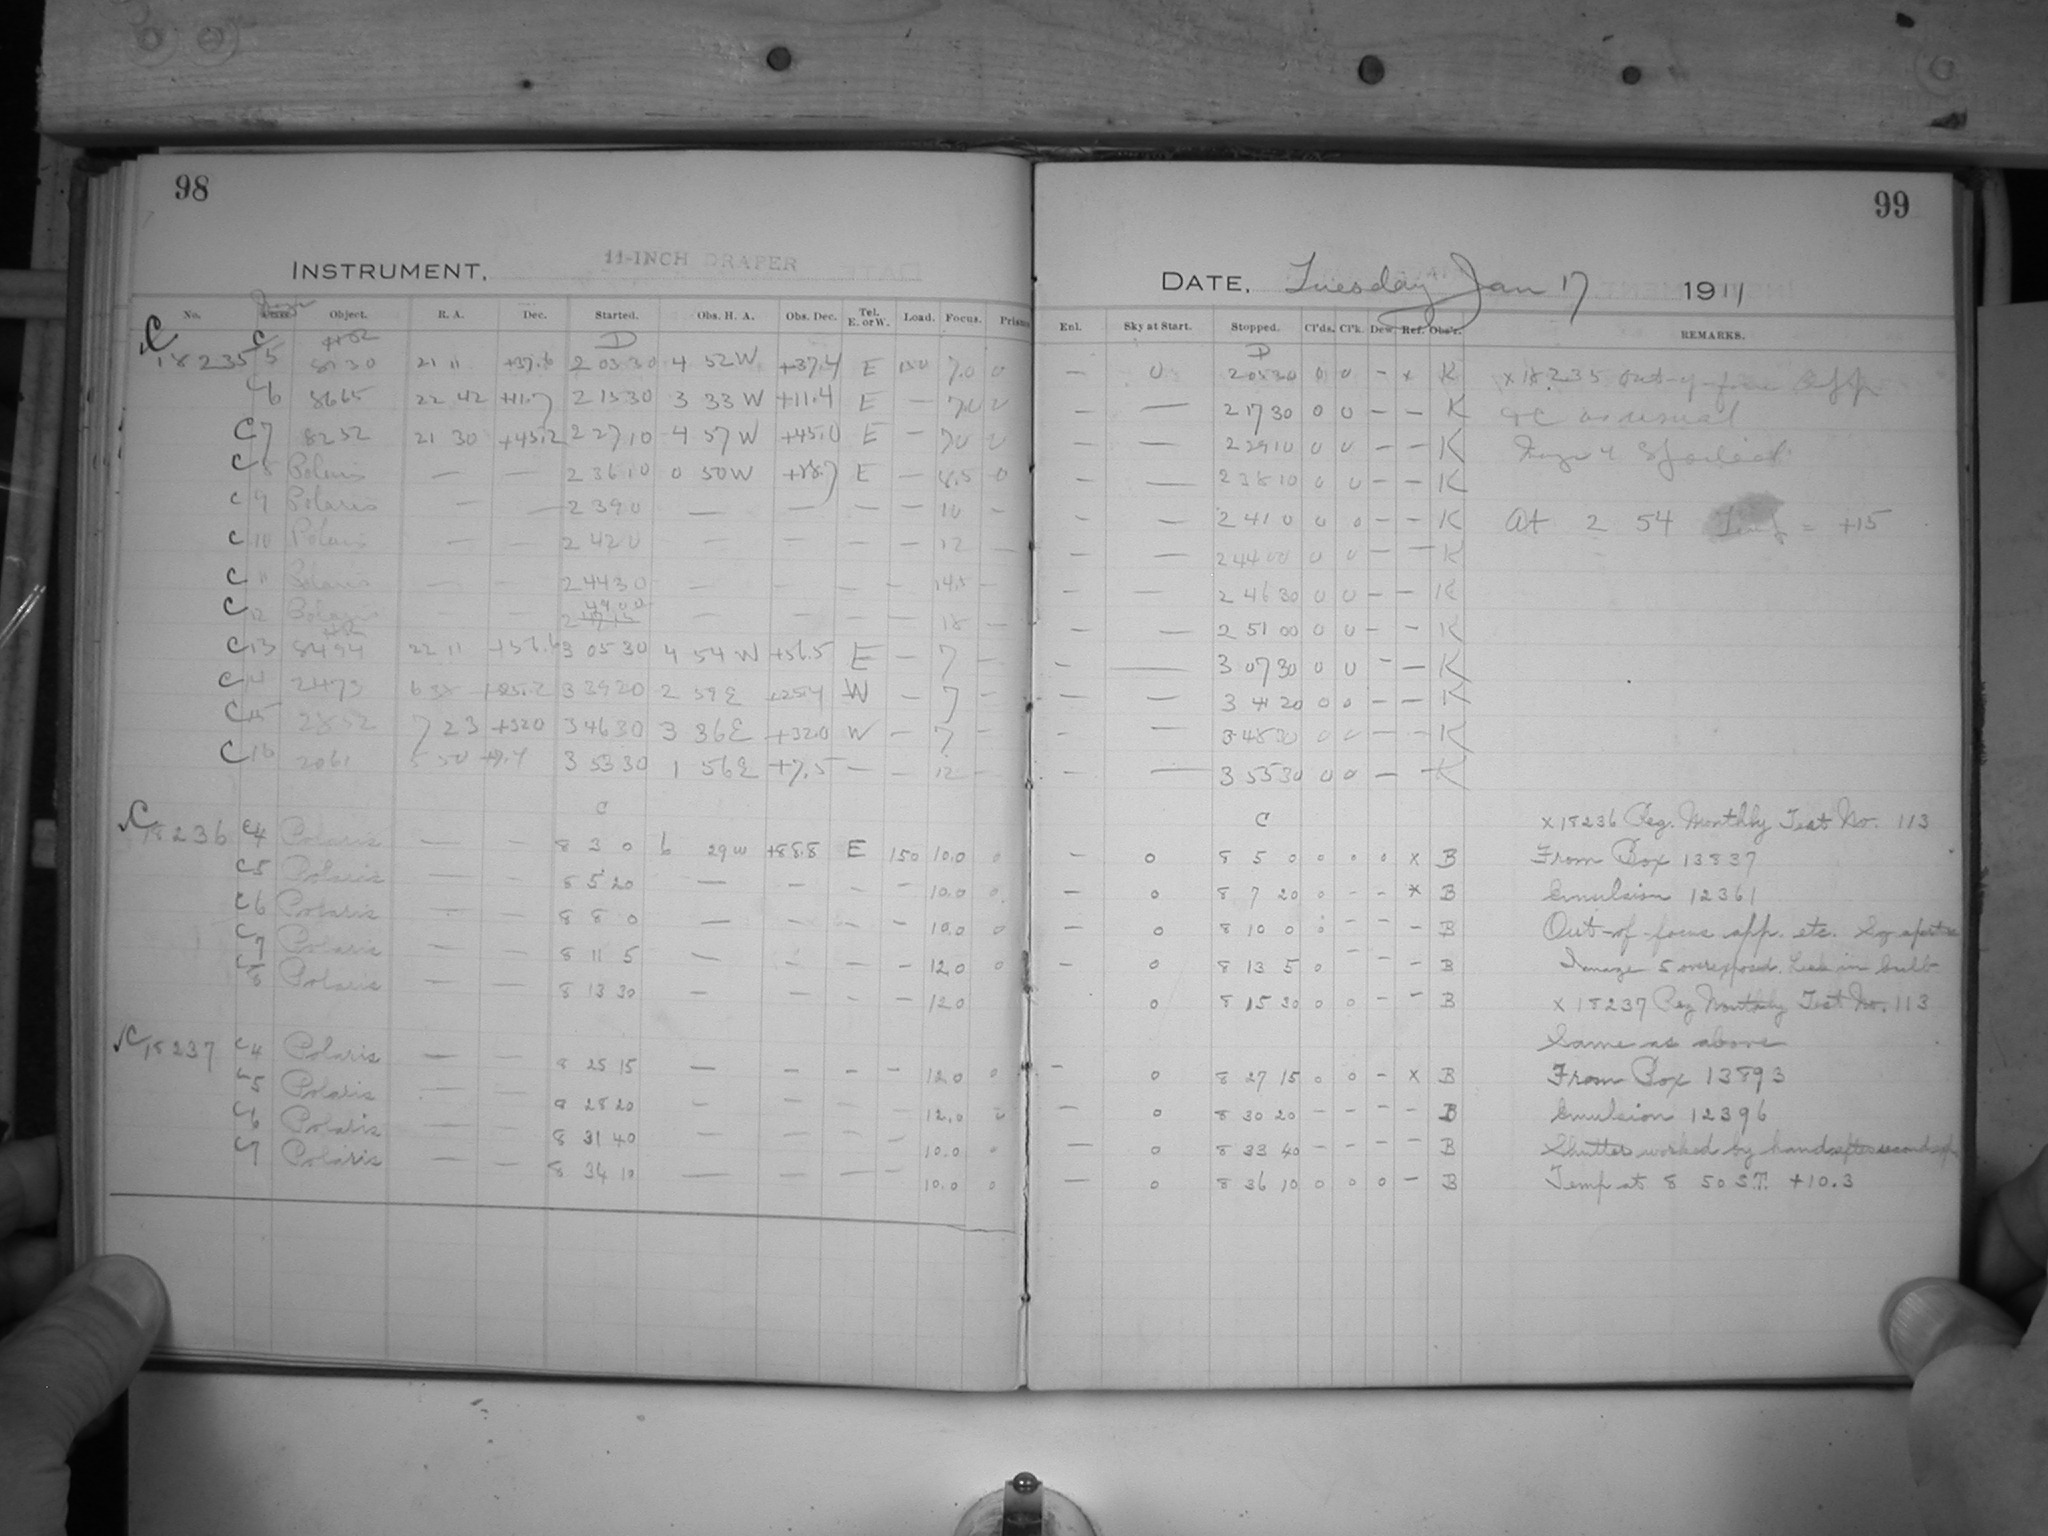 98
INSTRUMENT. 11-INCH DRAPER
No. Image Object. R. A. Dec. Started. Obs. H. A. Obs. Dec. Tel. E. or W. Load. Focus. Prisms
D
C 18235 C 5 8130 21 11 +37.6 2 03 30 4 52 W +37.4 E 150 7.0 0
C 6 8665 22 42 +11.7 2 15 30 3 33 W +11.4 E — 7.0 0
C 7 8252 21 30 +45.2 2 27 10 4 57 W +45.0 E — 70 0
C 8 Polaris — — 2 36 10 0 50 W +88.7 E — 8.5 0
C 9 Polaris — — 2 39 0 — — — — 10 —
C 10 Polaris — — 2 42 0 — — — — 12 —
C 11 Polaris — — 2 44 30 — — — — 14.5 —
C 12 Polaris — — 2 49 00 — — — — 18 —
C 13 8494 22 11 +56.6 3 05 30 4 54 W +56.5 E — 7 —
C 14 2473 6 38 +25.2 3 39 20 2 59 E +25.4 W — 7 —
C 15 2852 7 23 +32.0 3 46 30 3 36 E +32.0 W — 7 —
C 16 2061 5 50 +7.4 3 53 30 1 56 E +7.5 — — 12 —
C
C 18236 C4 Polaris — — 8 3 0 6 29 W +88.8 E 150 10.0 0
C5 Polaris — — 8 5 20 — — — — 10.0 0
C6 Polaris — — 8 8 0 — — — — 10.0 0
C7 Polaris — — 8 11 5 — — — — 12.0 0
C8 Polaris — — 8 13 30 — — — — 12.0
C 18237 C4 Polaris — — 8 25 15 — — — — 12.0 0
C5 Polaris — — 8 28 20 — — — — 12.0 0
C6 Polaris — — 8 31 40 — — — — 10.0 0
C7 Polaris — — 8 34 10 — — — — 10.0 0
99
DATE. Tuesday Jan 17 1911
Enl. Sky at Start. Stopped. Cl'ds. Cl'k. Dew Ref. Obs'r. REMARKS.
D
— 0 2 05 30 0 0 — x K x 18235 Out-of-focus App
— — 2 17 30 0 0 — — K &c as usual
— — 2 29 10 0 0 — — K Image 4 Spoiled
— — 2 38 10 0 0 — — K
— — 2 41 0 0 0 — — K At 2 54 Temp = +15
— — 2 44 00 0 0 — — K
— — 2 46 30 0 0 — — K
— — 2 51 00 0 0 — — K
— — 3 07 30 0 0 — — K
— — 3 41 20 0 0 — — K
— — 3 48 30 0 0 — — K
— — 3 55 30 0 0 — — K
C x 18236 Reg. Monthly Test No. 113
— 0 8 5 0 0 0 0 x B From Box 13837
— 0 8 7 20 0 — — x B Emulsion 12361
— 0 8 10 0 0 — — — B Out-of-focus app. etc. Sq aperture
— 0 8 13 5 0 — — — B Image 5 overexposed. Leak in bulb
0 8 15 30 0 0 — — B x 18237 Reg Monthly Test No. 113
Same as above
— 0 8 27 15 0 0 — x B From Box 13893
— 0 8 30 20 — — — — B Emulsion 12396
— 0 8 33 40 — — — — B Shutter worked by hand after second
— 0 8 36 10 0 0 0 — B Temp at 8 50 S.T. +10.3